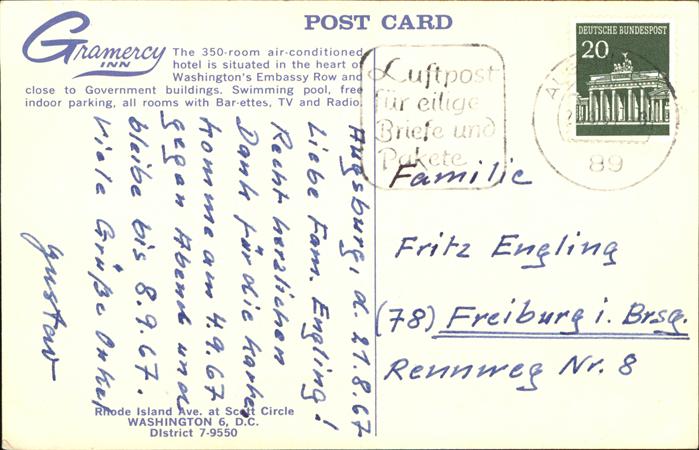 POST CARD
Gramercy
INN
The 350-room air-conditioned
hotel is situated in the heart of
Washington's Embassy Row and
close to Government buildings. Swimming pool, free
indoor parking, all rooms with Bar-ettes, TV and Radio.
DEUTSCHE BUNDESPOST
20
Luftpost
für eilige
Briefe und
Pakete
89
Augsburg, d. 21.8.67
Liebe Fam. Engling!
Recht herzlichen
Dank für die Karte,
komme am 4.9.67
gegen Abend und
bleibe bis 8.9.67.
Viele Grüße Onkel
Gustav
Familie
Fritz Engling
(78) Freiburg i. Brsg.
Rennweg Nr. 8
Rhode Island Ave. at Scott Circle
WASHINGTON 6, D.C.
DIstrict 7-9550